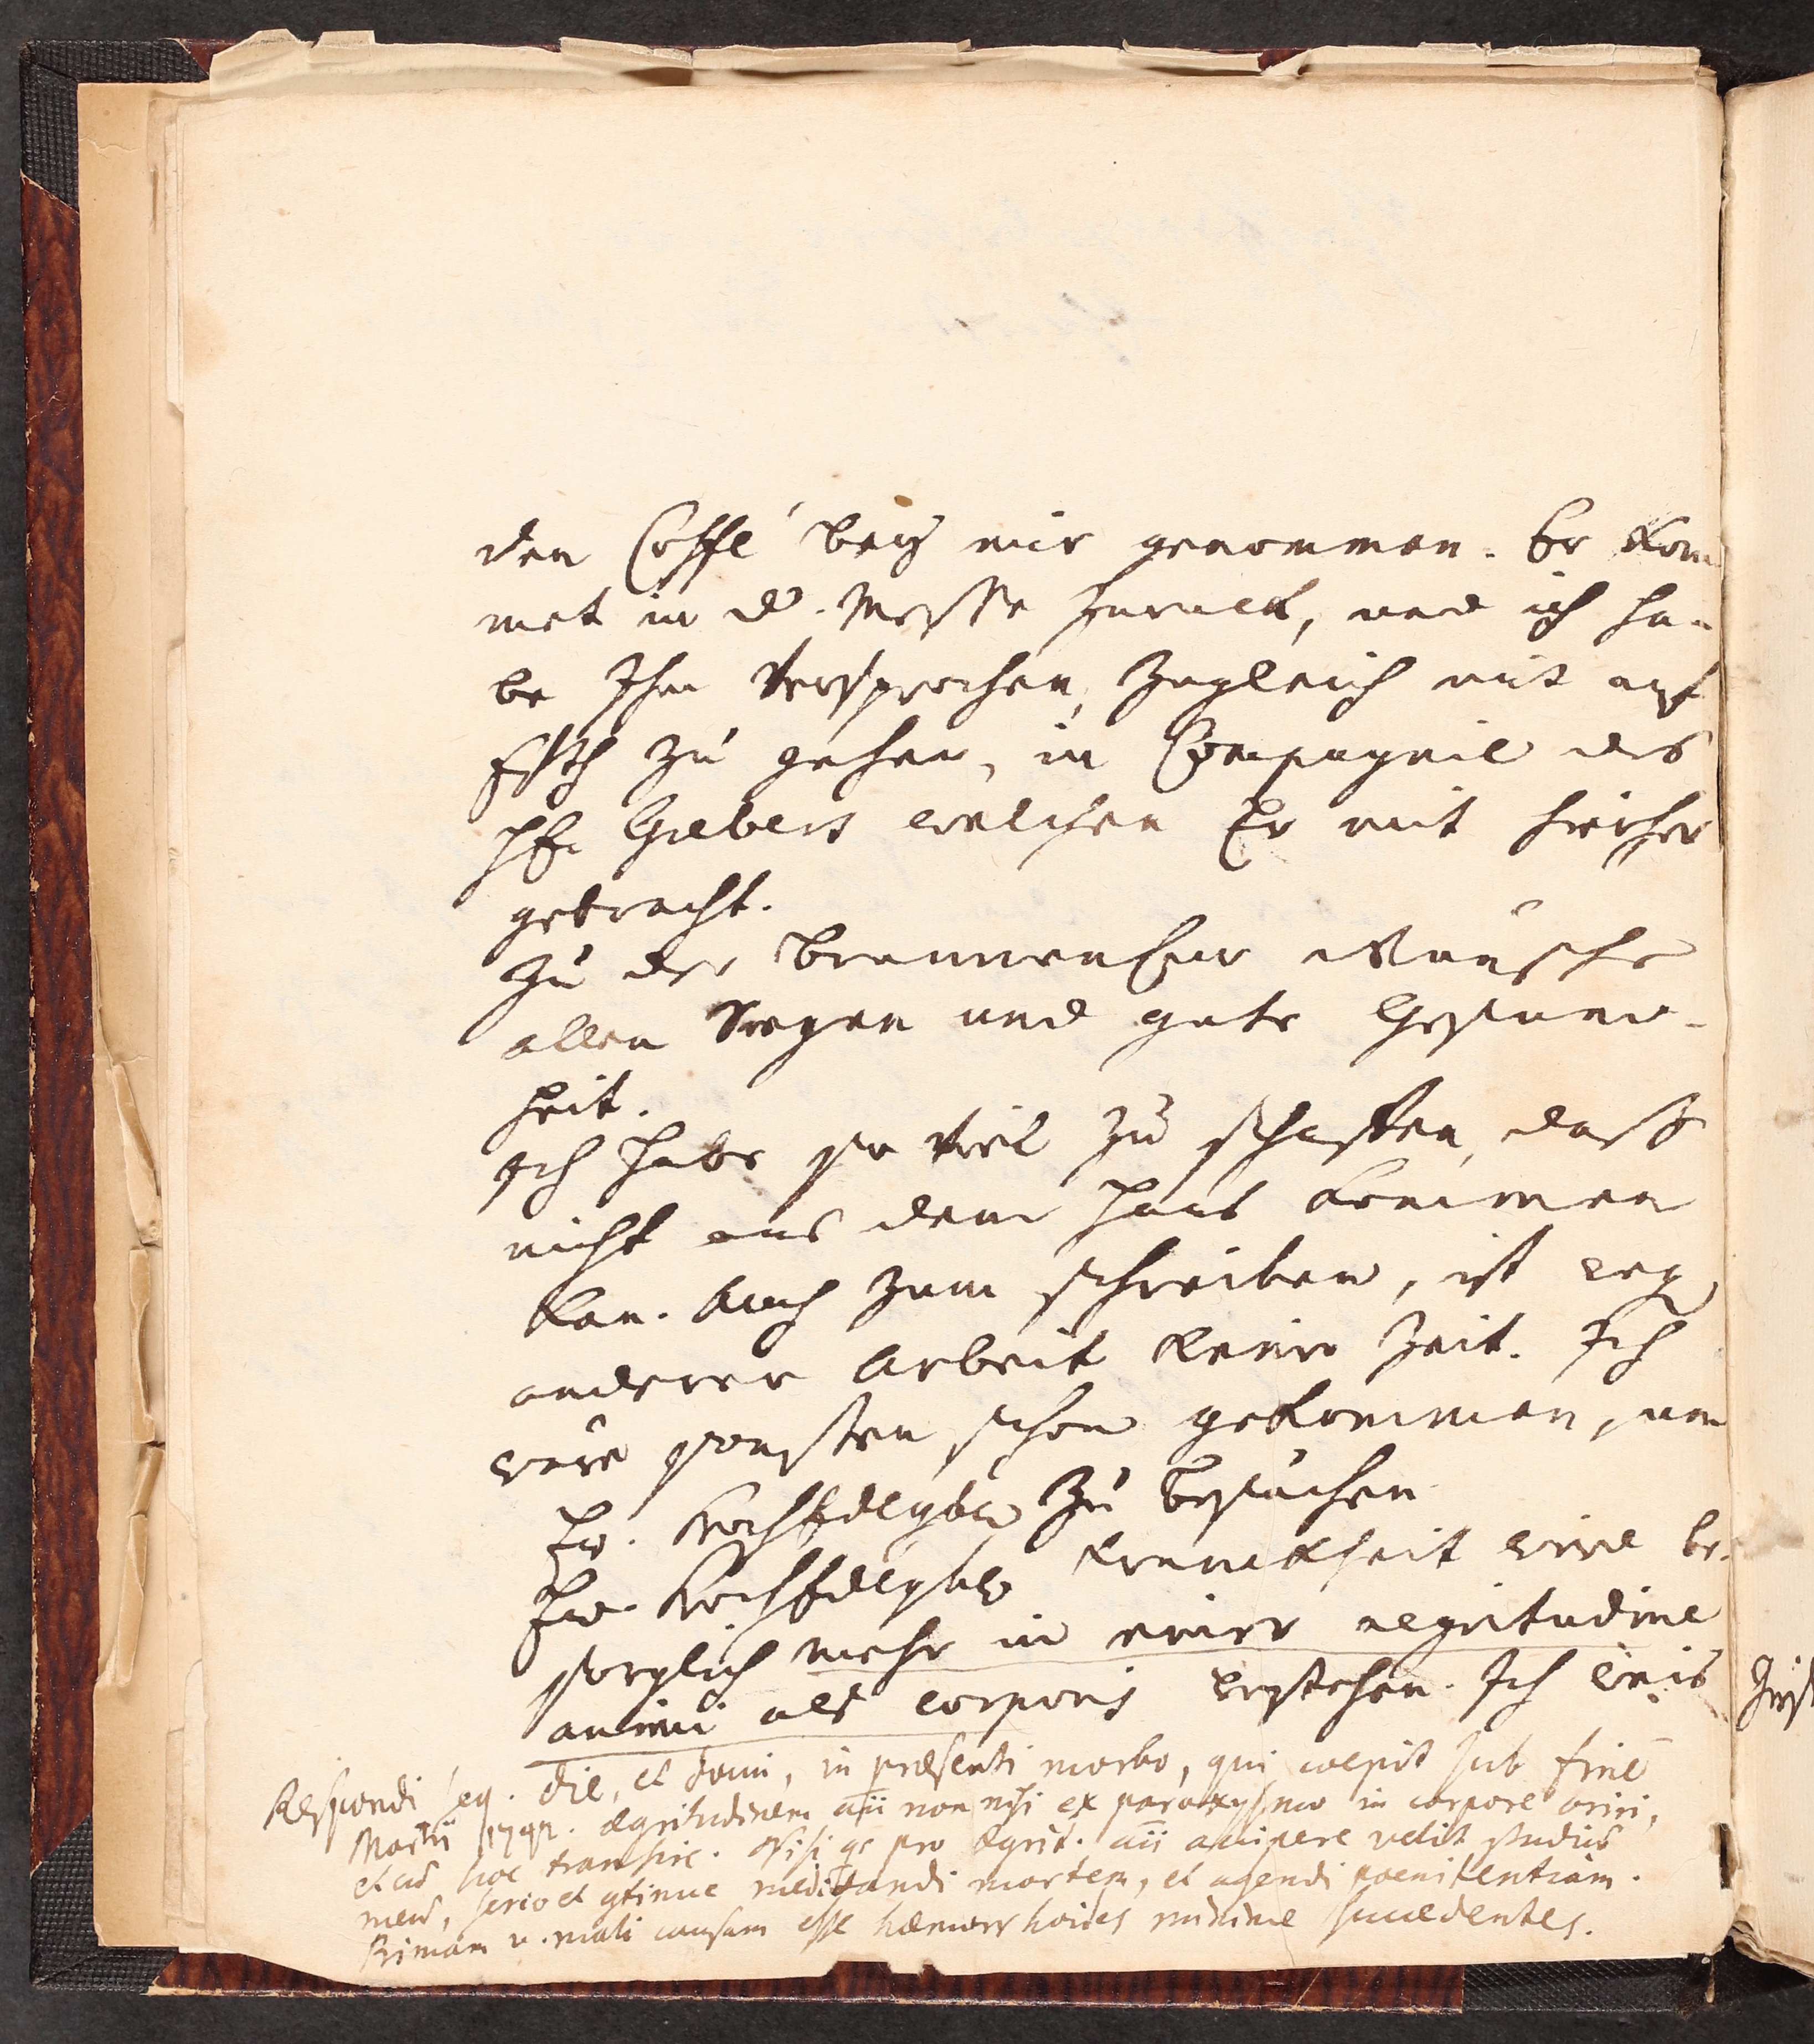 den Coffé bey mir genommen. Er kom
met in d. Messe zuruck, und ich ha-
be Ihm versprochen, zugleich mit auf
zu gehen, in Compagnie des
H. Gebers welchen Er mit hierher
gebracht.
Zu der BrunnenCur wünsche
allen Seegen und gute Gesund-
heit.
Ich habe so viel zu schaffen, dass
nicht aus dem Haus kommen
kan. Auch zum schreiben, ist weg
anderer Arbeit keine Zeit. Ich
wäre sonsten schon gekommen, um
Ew. zu besuchen
Ew. Kranckheit wird be-
sorglich mehr in einer aegritudine
animi als corporis bestehen. Ich weis
Respondi seq. die, et domi, in præsenti morbo, qui coepit sub finē
Martii 1742. ægritudinem aīi non nisi ex paroxysmo in corpore oriri,
et cū hoc transire. Nisi qs pro ægrit. aīi accipere velit studiū
meū, serio et ɔtinue meditandi mortem, et agendi poenitentiam.
Primam v. mali causam esse hæmorrhoides minime succedentes.